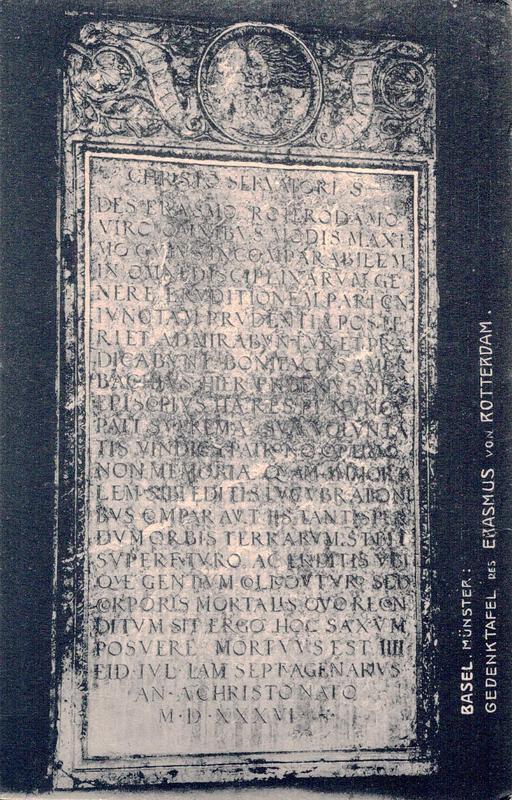 CHRISTO SERVATORI S
DES ERASMO ROTERODAMO
VIRO OMNIBVS MODIS MAXI
MO CVIVS INCOMPARABILEM
IN OMNI DISCIPLINARVM GE
NERE ERVDITIONEM PARI CN
IVNCTAM PRVDENTIA POSTE
RI ET ADMIRABVNTVR ET PRÆ
DICABVNT BONIFACIVS AMER
BACHIVS HIER FROBENIVS NIC
EPISCOPIVS HÆREDES ET NVNCV
PATI SVPREMÆ SVÆ VOLVNTA
TIS VINDICES PATRONO OPTIMO
NON MEMORIÆ QVAM IMMORTA
LEM SIBI EDITIS LVCVBRATIONI
BVS COMPARAVIT IIS TANTISPER
DVM ORBIS TERRARVM STABIT
SVPERFVTVRO AC ERVDITIS VBI
QVE GENTIVM COLLOQVTVRO SED
CORPORIS MORTALIS QVO RECON
DITVM SIT ERGO HOC SAXVM
POSVERE MORTVVS EST IIII
EID·IVL·IAM SEPTVAGENARIVS
AN·A CHRISTO NATO
M·D·XXXVI
BASEL. MÜNSTER:
GEDENKTAFEL DES ERASMUS VON ROTTERDAM.